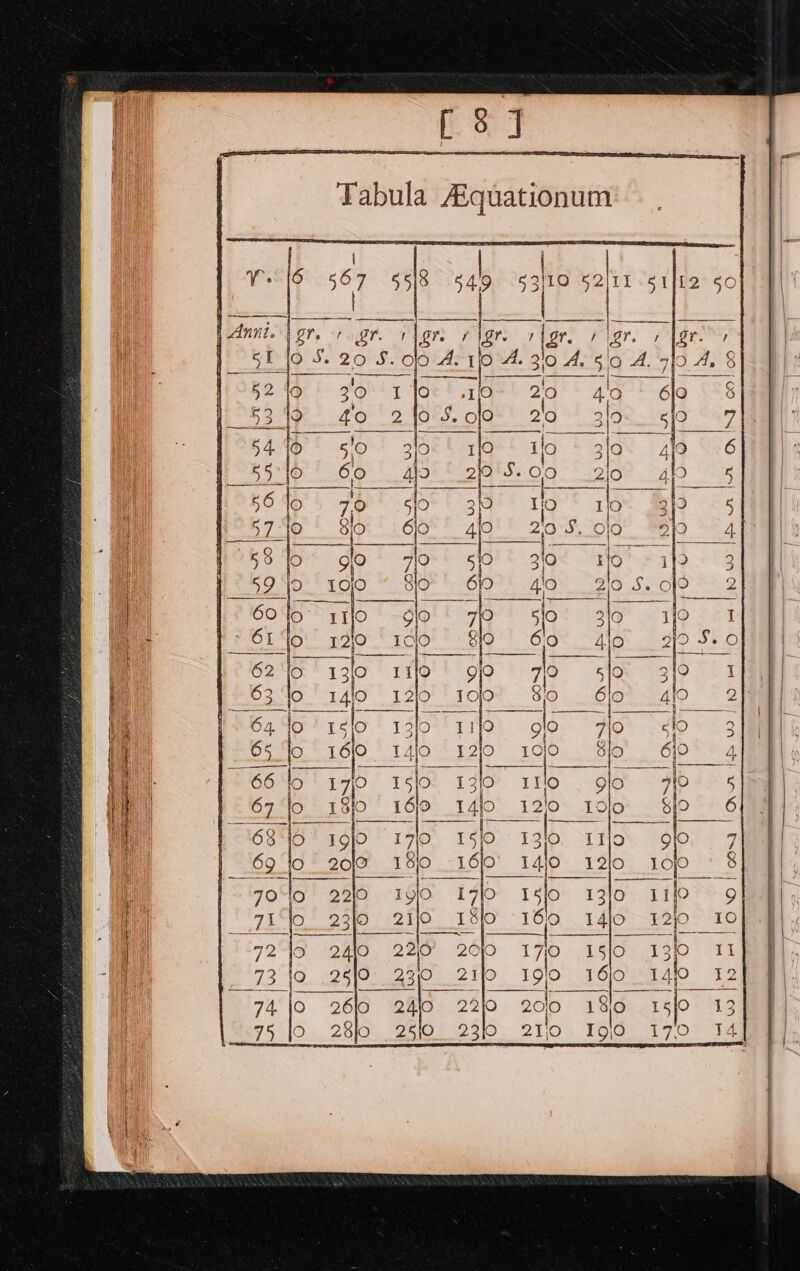 [ 8 ]
Tabula Æquationum
♈. 6 56 7 55 8 54 9 53 10 52 11 51 12 50
Anni. gr. ′ gr. ′ gr. ′ gr. ′ gr. ′ gr. ′ gr. ′
51 0 S. 2 0 S. 0 0 A. 1 0 A. 3 0 A. 5 0 A. 7 0 A. 8
52 0 3 0 1 0 1 0 2 0 4 0 6 0 8
53 0 4 0 2 0 S. 0 0 2 0 3 0 5 0 7
54 0 5 0 3 0 1 0 1 0 3 0 4 0 6
55 0 6 0 4 0 2 0 S. 0 0 2 0 4 0 5
56 0 7 0 5 0 3 0 1 0 1 0 3 0 5
57 0 8 0 6 0 4 0 2 0 S. 0 0 2 0 4
58 0 9 0 7 0 5 0 3 0 1 0 1 0 3
59 0 10 0 8 0 6 0 4 0 2 0 S. 0 0 2
60 0 11 0 9 0 7 0 5 0 3 0 1 0 1
61 0 12 0 10 0 8 0 6 0 4 0 2 0 S. 0
62 0 13 0 11 0 9 0 7 0 5 0 3 0 1
63 0 14 0 12 0 10 0 8 0 6 0 4 0 2
64 0 15 0 13 0 11 0 9 0 7 0 5 0 3
65 0 16 0 14 0 12 0 10 0 8 0 6 0 4
66 0 17 0 15 0 13 0 11 0 9 0 7 0 5
67 0 18 0 16 0 14 0 12 0 10 0 8 0 6
68 0 19 0 17 0 15 0 13 0 11 0 9 0 7
69 0 20 0 18 0 16 0 14 0 12 0 10 0 8
70 0 22 0 19 0 17 0 15 0 13 0 11 0 9
71 0 23 0 21 0 18 0 16 0 14 0 12 0 10
72 0 24 0 22 0 20 0 17 0 15 0 13 0 11
73 0 25 0 23 0 21 0 19 0 16 0 14 0 12
74 0 26 0 24 0 22 0 20 0 18 0 15 0 13
75 0 28 0 25 0 23 0 21 0 19 0 17 0 14